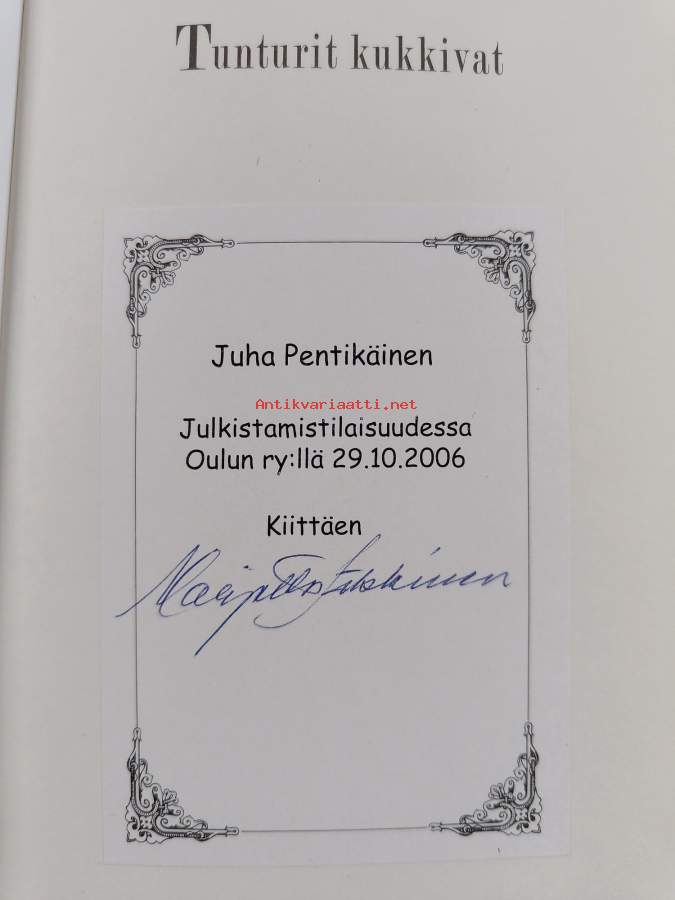 Tunturit kukkivat
Juha Pentikäinen
Antikvariaatti.net
Julkistamistilaisuudessa
Oulun ry:llä 29.10.2006
Kiittäen